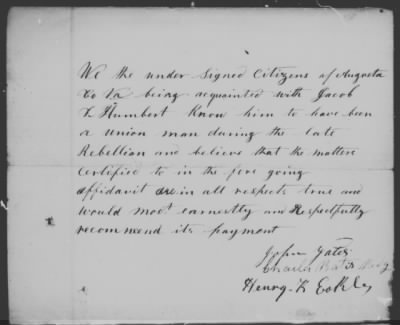 We the under Signed Citizens of Augusta
Co Va being acquainted with Jacob
L Humbert Know him to have been
a union man during the late
Rebellion and believe that the matters
Certified to in the fore going
affidavit are in all respects true and
would most earnestly and Respectfully
recommend its payment
John Yates
Charles
Henry L Eckle